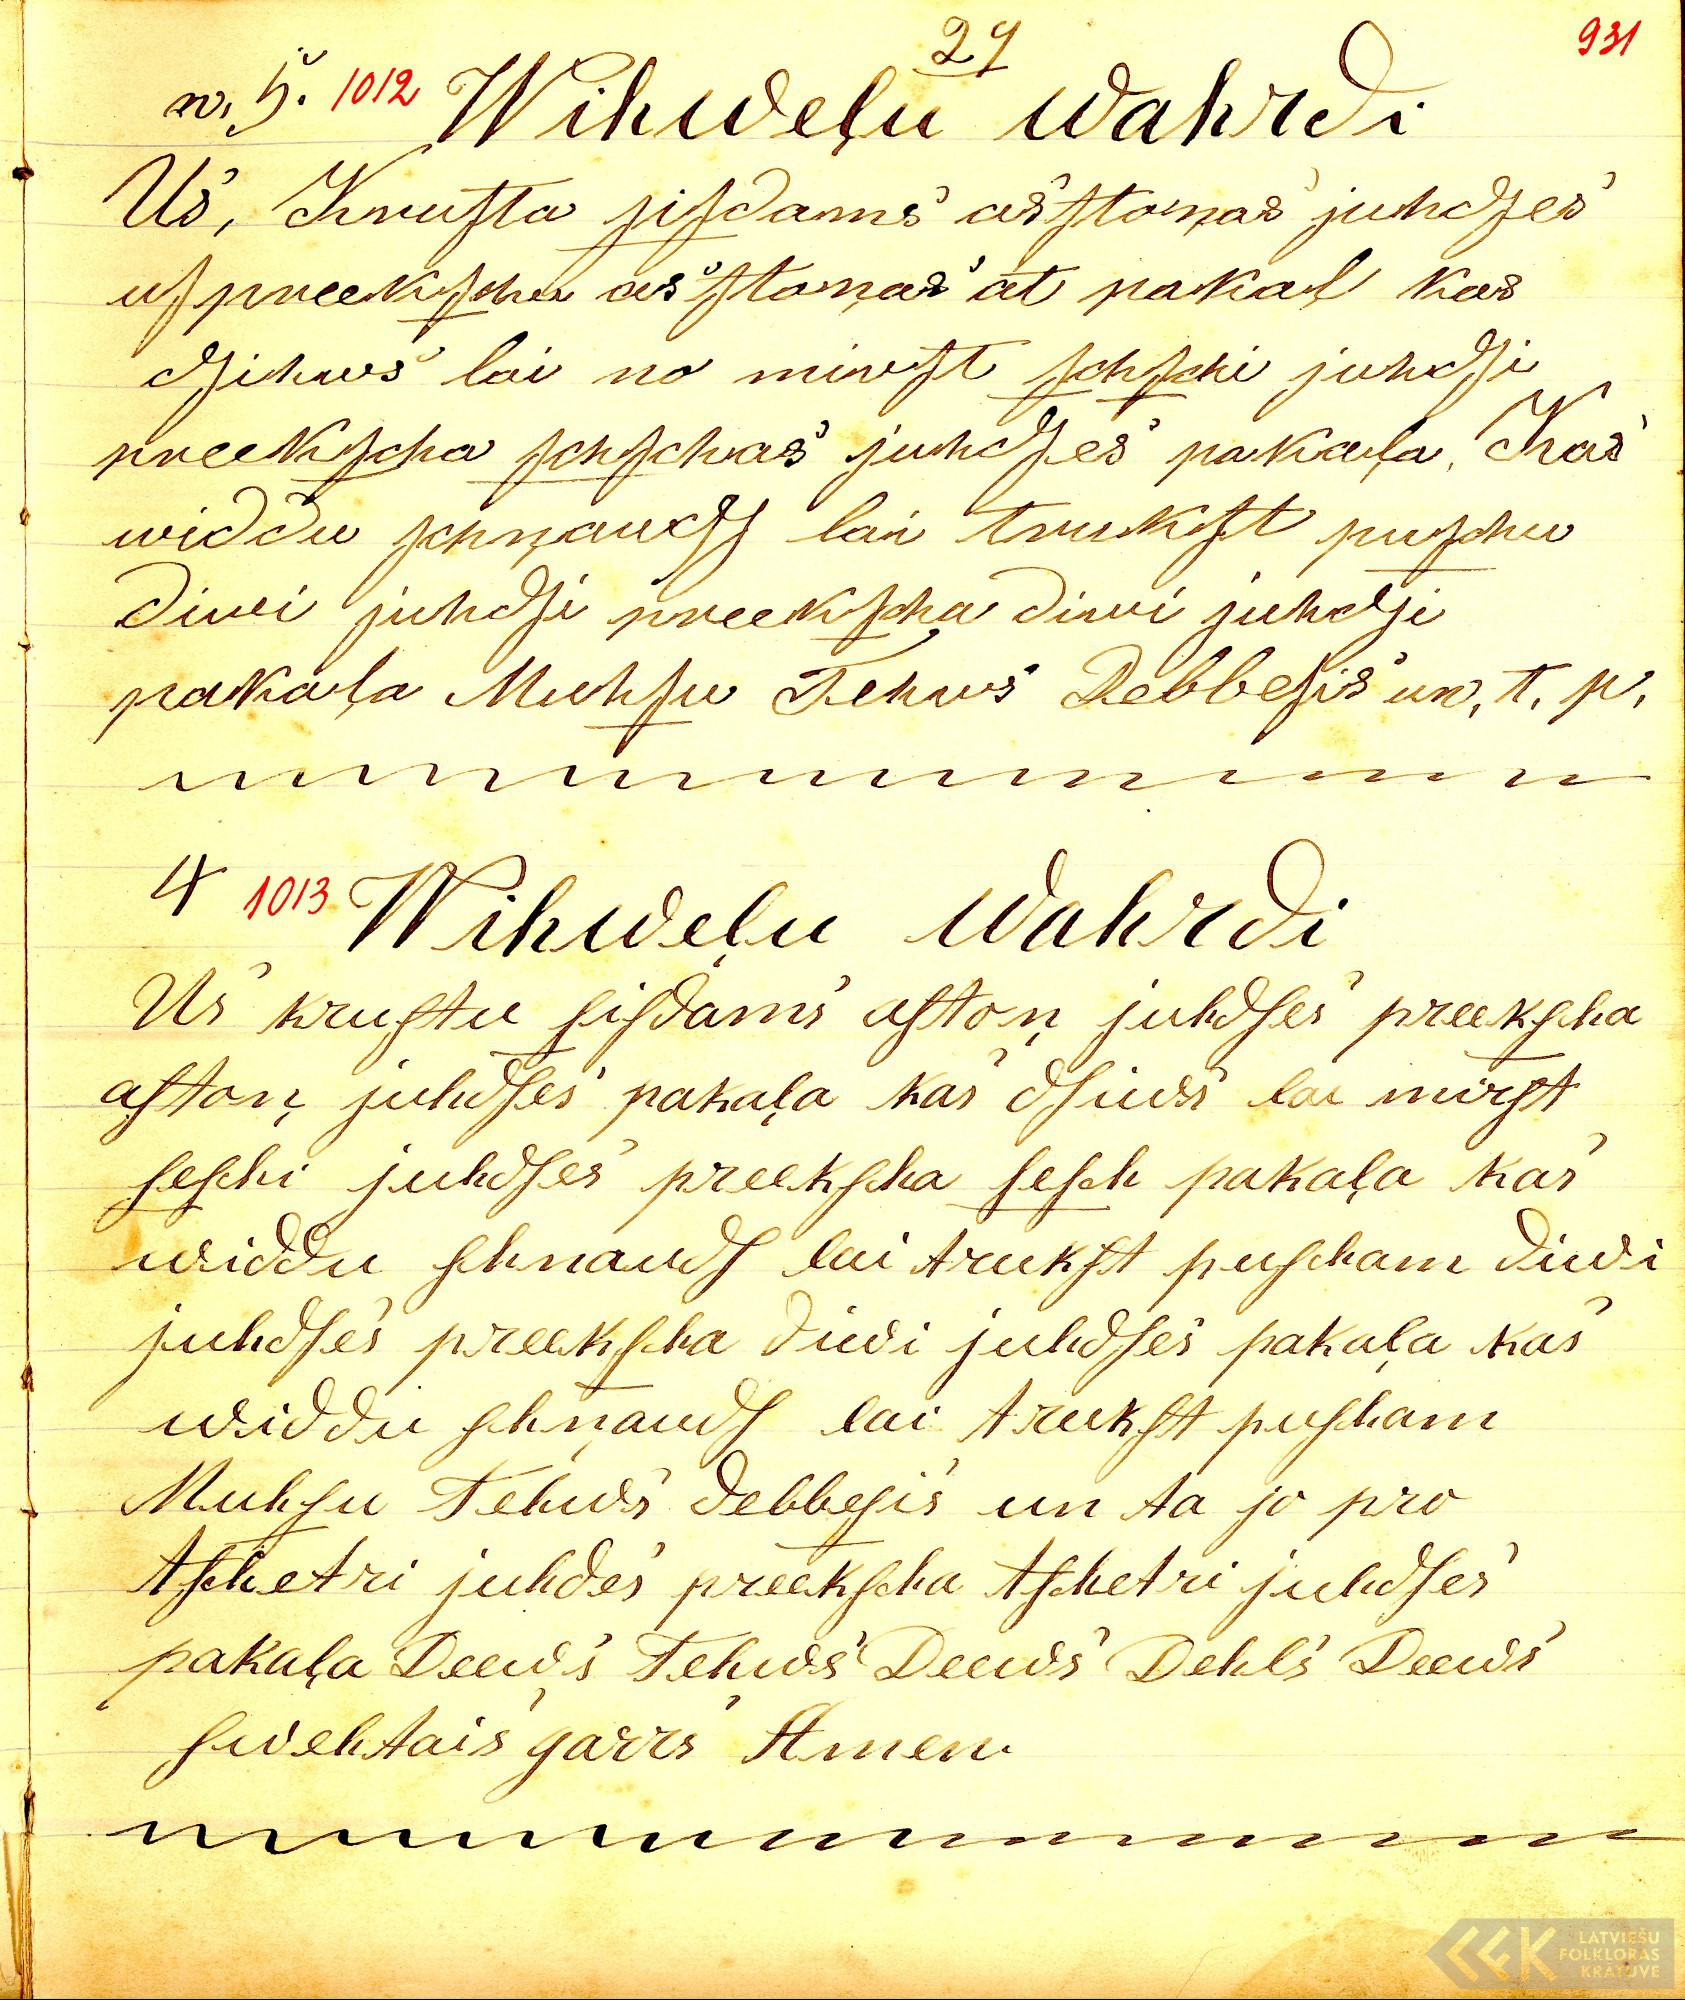 29
931
n. 5. 1012 Wihweļu wahrdi
Us, Krusta sisdams asstoņas juhdses
us preekschu asstoņas at pakaļ kas
dsihws lai no mirst schschi juhdsi
preekscha schschas juhdses pakaļa. Kas
widdu schņaudz lai trukst puschu
diwi juhdsi preekscha diwi juhdsi
pakaļa Muhsu Tehws Debbesis un, t. p.
4 1013 Wihweļu wahrdi
Us krustu sisdams astoņ juhdses preekscha
astoņ juhdses pakaļa kas dsiws lai mirst
seschi juhdses preekscha sesch pakaļa kas
widdu schnauds lai trukst puscham diwi
juhdses preekscha diwi juhdses pakaļa kas
widdu schņauds lai trukst puscham
Muhsu Tehws debbesis un ta jo pro
tschetri juhdes preekscha tschetri juhdses
pakaļa Deews Tehws Deews Dehls Deews
swehtais garrs Amen.
LATVIEŠU
FOLKLORAS
KRĀTUVE